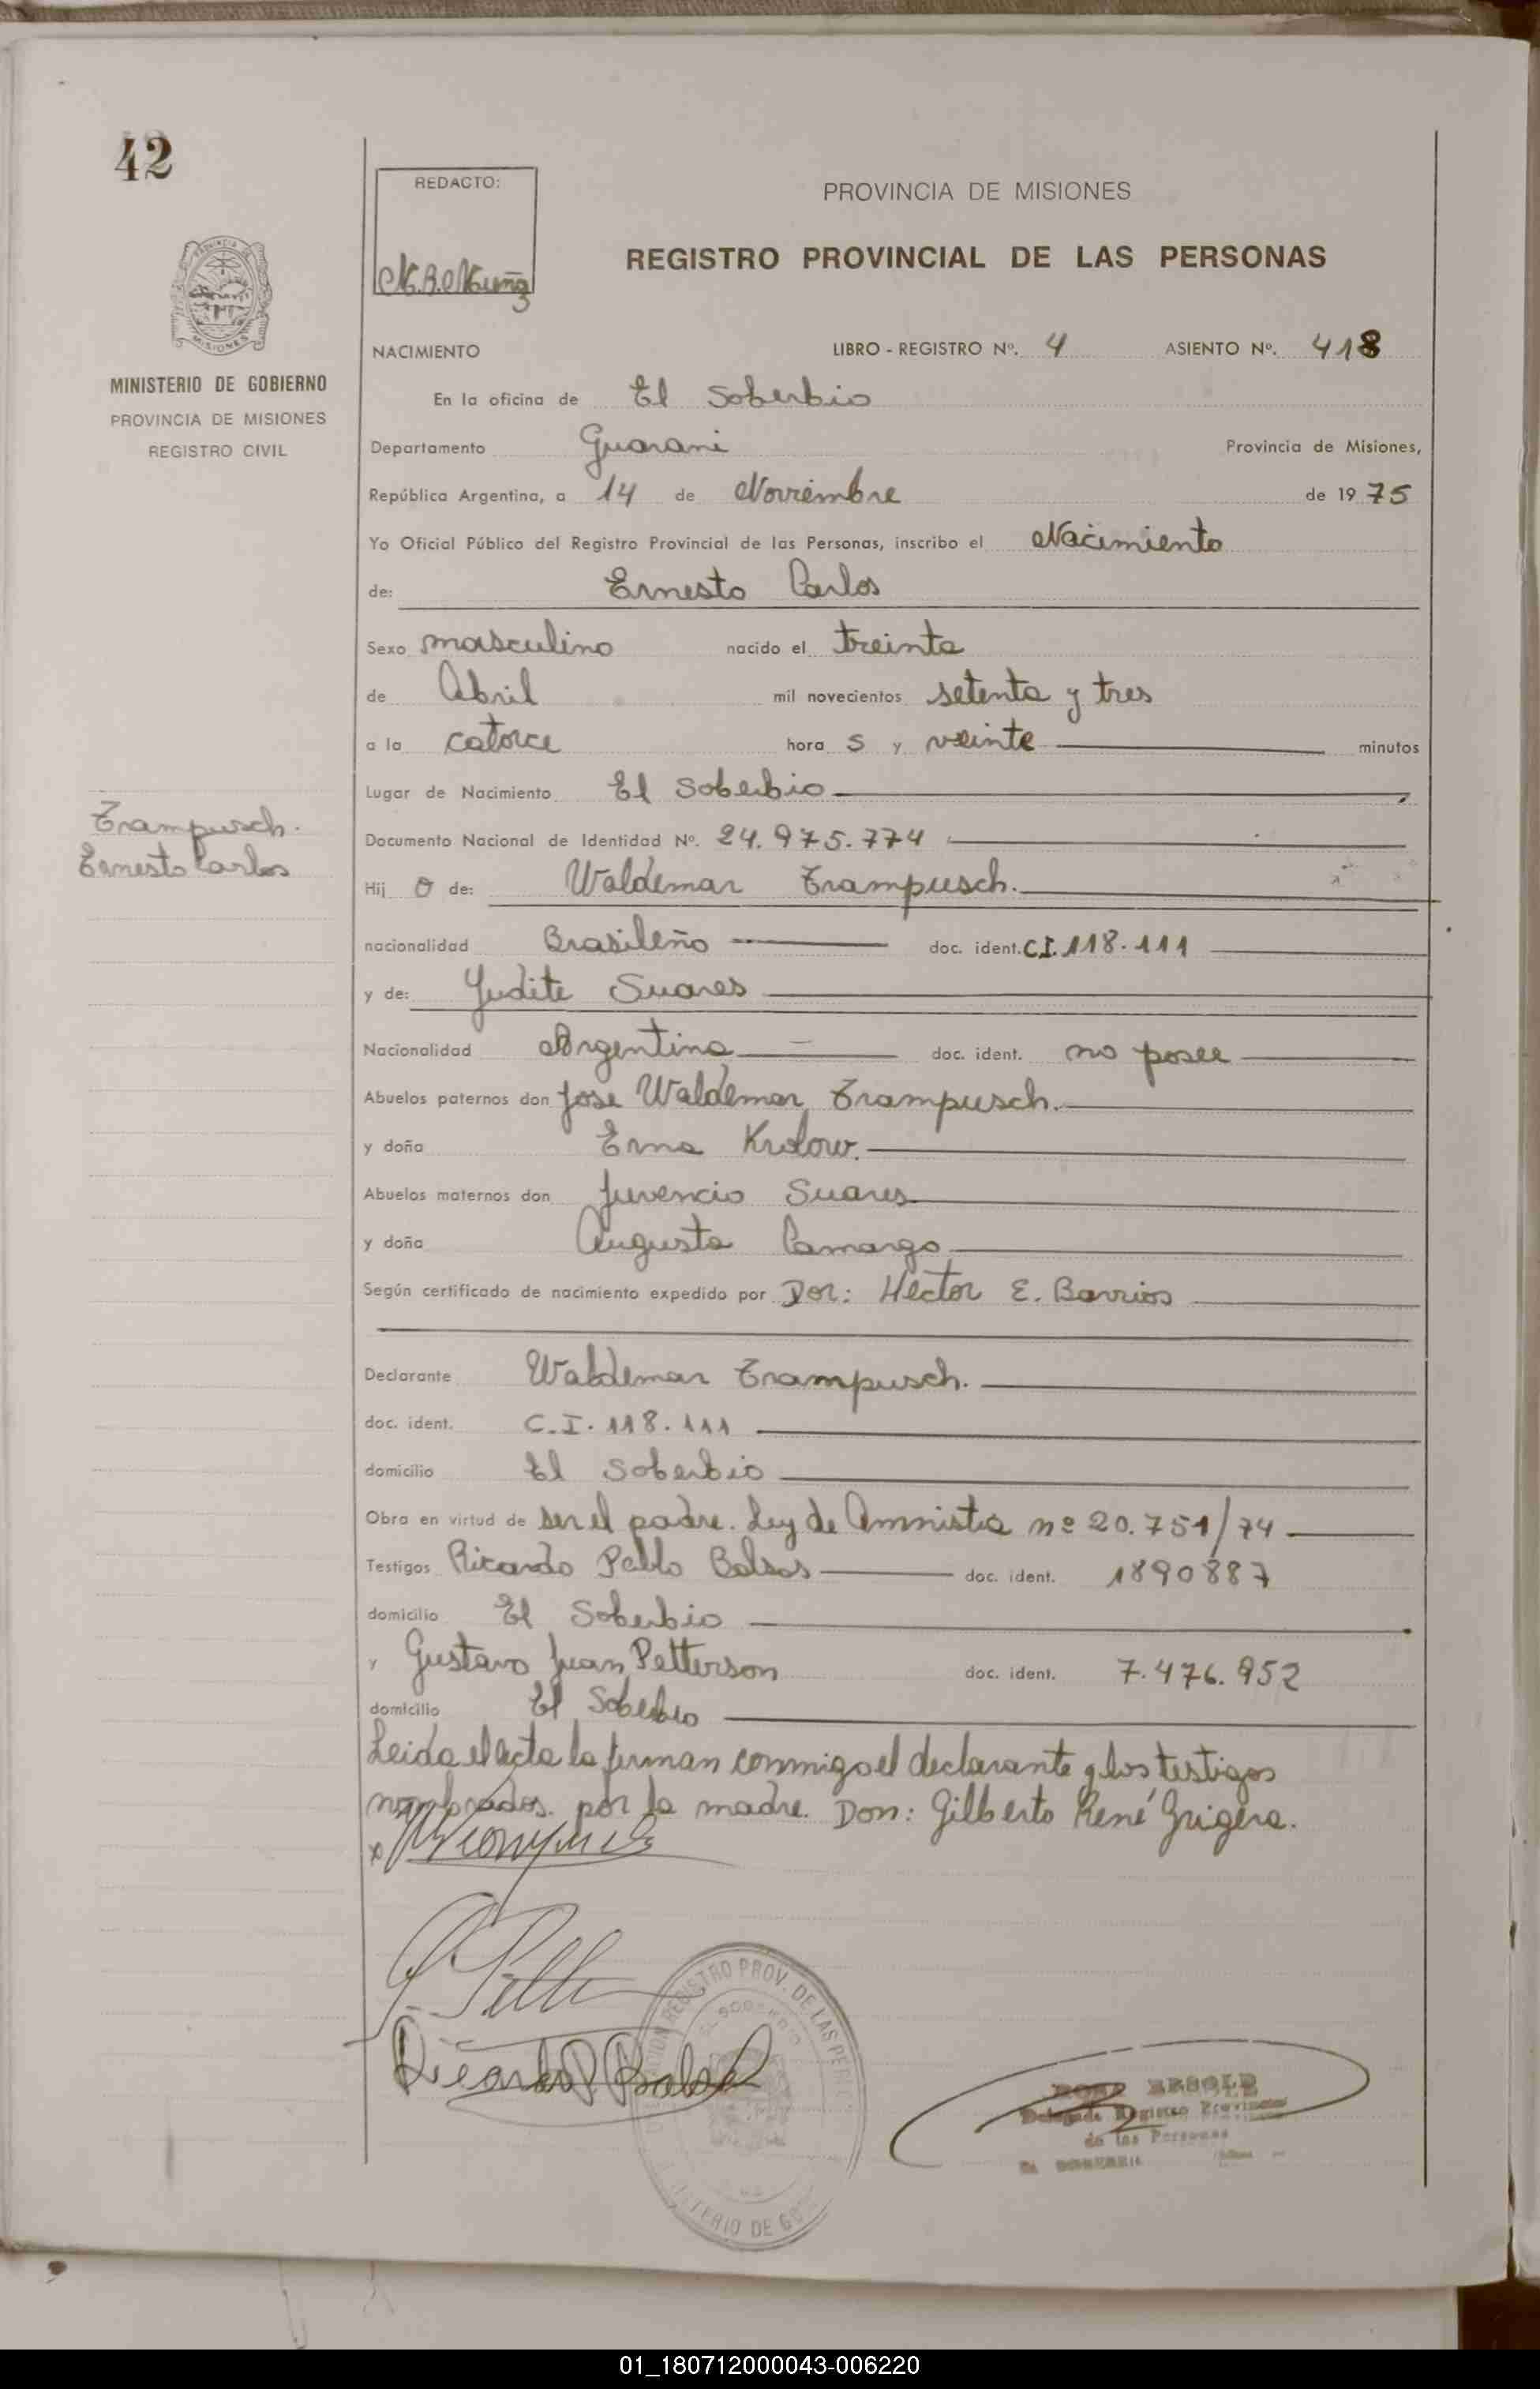 42
REDACTO:
PROVINCIA DE MISIONES
REGISTRO PROVINCIAL DE LAS PERSONAS
MINISTERIO DE GOBIERNO
PROVINCIA DE MISIONES
REGISTRO CIVIL
NACIMIENTO LIBRO - REGISTRO Nº. 4 ASIENTO Nº. 418
En la oficina de El Soberbio
Departamento Guarani Provincia de Misiones,
República Argentina, a 14 de Noviembre de 1975
Yo Oficial Público del Registro Provincial de las Personas, inscribo el Nacimiento
de: Ernesto Carlos
Sexo masculino nacido el treinta
de Abril mil novecientos setenta y tres
a la catorce hora s y veinte minutos
Lugar de Nacimiento El Soberbio
Trampusch.
Ernesto Carlos
Documento Nacional de Identidad Nº. 24.975.774
Hij o de: Waldemar Trampusch.
nacionalidad Brasileño doc. ident. C.I. 118.111
y de: Yudite Suares
Nacionalidad Argentina doc. ident. no posee
Abuelos paternos don Jose Waldemar Trampusch.
y doña Erna Krolow.
Abuelos maternos don Juvencio Suares
y doña Augusta Camargo
Según certificado de nacimiento expedido por Dor: Hector E. Barrios
Declarante Waldemar Trampusch.
doc. ident. C.I. 118.111
domicilio El Soberbio
Obra en virtud de ser el padre. Ley de Amnistia nº 20.751/74
Testigos Ricardo Pablo Balsas doc. ident. 1890887
domicilio El Soberbio
y Gustavo Juan Petterson doc. ident. 7.476.952
domicilio El Soberbio
Leida el acta la firman conmigo el declarante y los testigos
nombrados. por la madre. Don: Gilberto René Grigera.
Delegada Registro Provincial
de las Personas
01_180712000043-006220